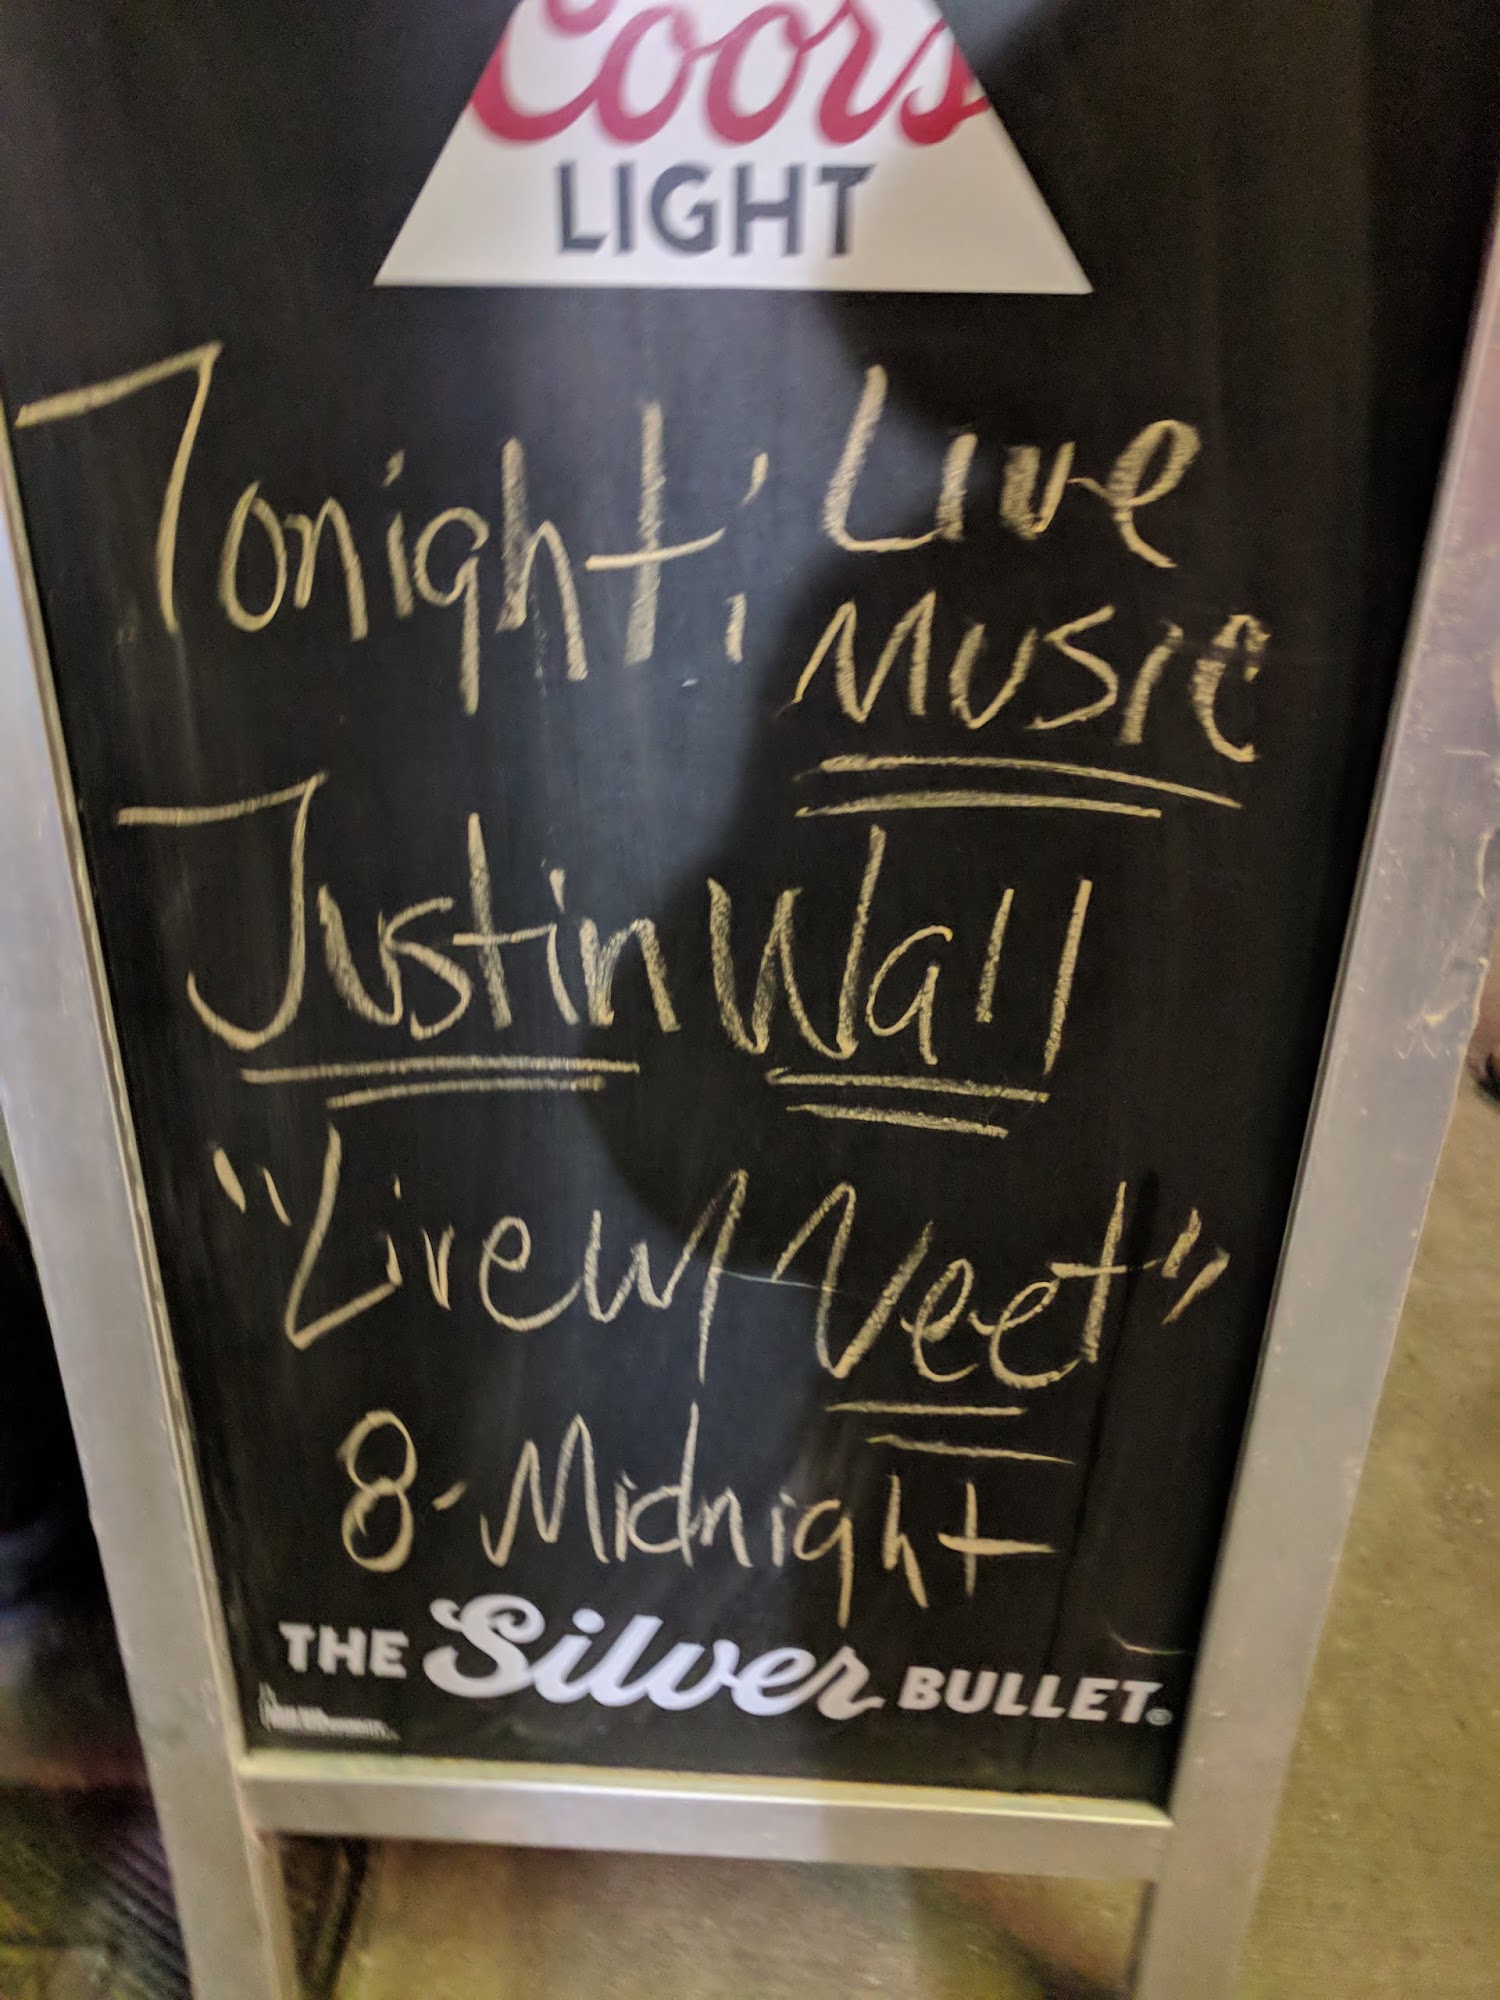 Coors
LIGHT
Tonight: Live
Music
Justin Wall
"Live w/ Veet"
8-Midnight
THE Silver BULLET®